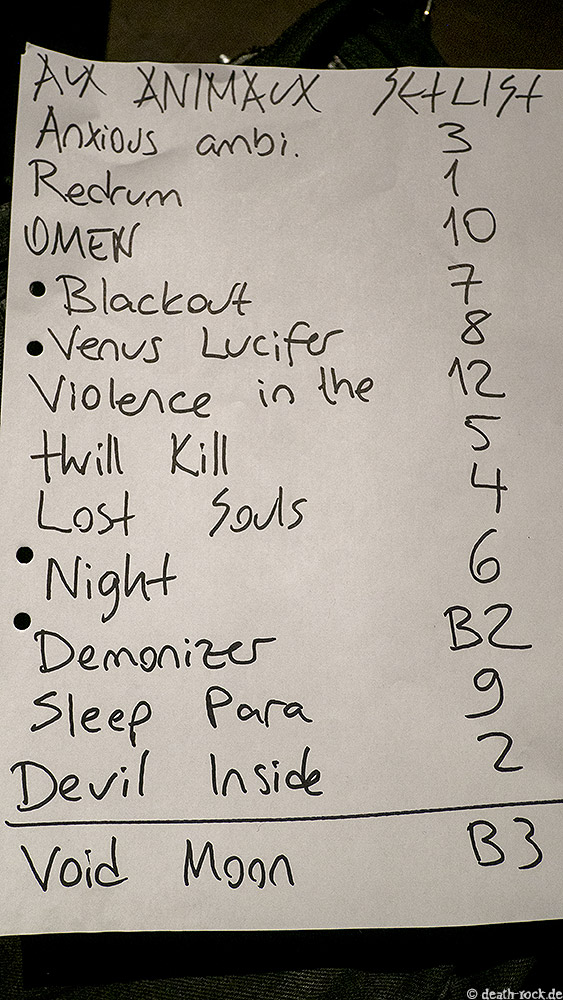 AUX ANIMAUX SETLIST
Anxious ambi. 3
Redrum 1
OMEN 10
• Blackout 7
• Venus Lucifer 8
Violence in the 12
thrill Kill 5
Lost Souls 4
Night 6
Demonizer B2
Sleep Para 9
Devil Inside 2
Void Moon B3
© death-rock.de